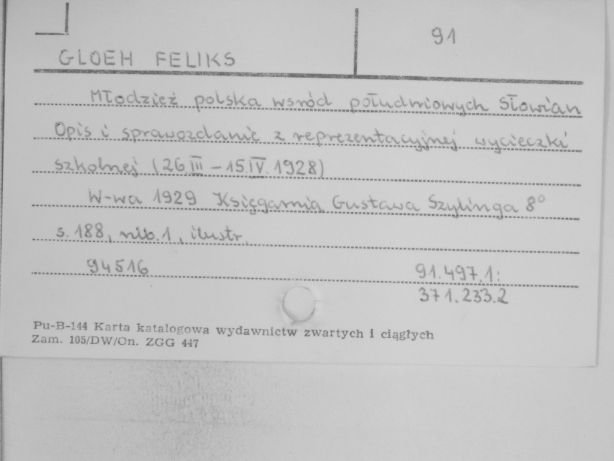 91
GLOEH FELIKS
Młodzież polska wsród południowych Słowian
Opis i sprawozdanie z reprezentacyjnej wycieczki
szkolnej (26 III – 15 IV 1928)
W-wa 1929 Księgarnia Gustawa Szylinga 8°
s. 188, nlb. 1, ilustr.
94516 91.497.1:
371.233.2
Pu-B-144 Karta katalogowa wydawnictw zwartych i ciągłych
Zam. 105/DW/On. ZGG 447